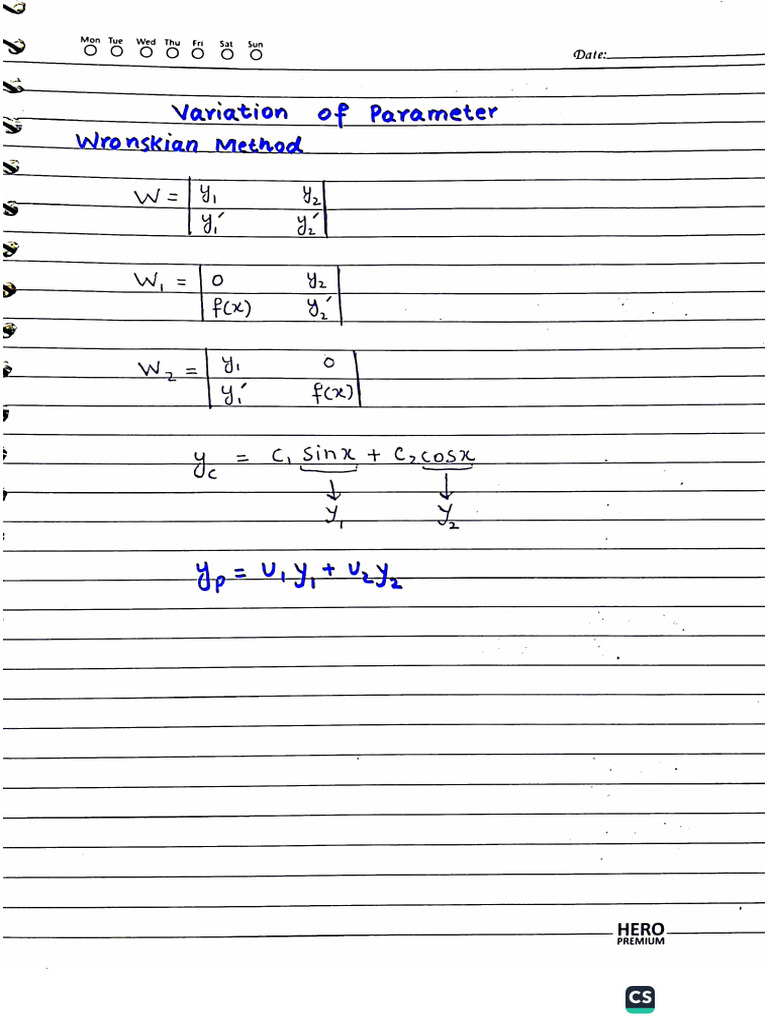 Mon Tue Wed Thu Fri Sat Sun
Date:
Variation of Parameter
Wronskian Method
W = | y₁ y₂ |
| y₁′ y₂′ |
W₁ = | 0 y₂ |
| f(x) y₂′ |
W₂ = | y₁ 0 |
| y₁′ f(x) |
y_c = c₁ sinx + c₂ cosx
↓ ↓
y₁ y₂
y_p = u₁y₁ + u₂y₂
HERO
PREMIUM
CS